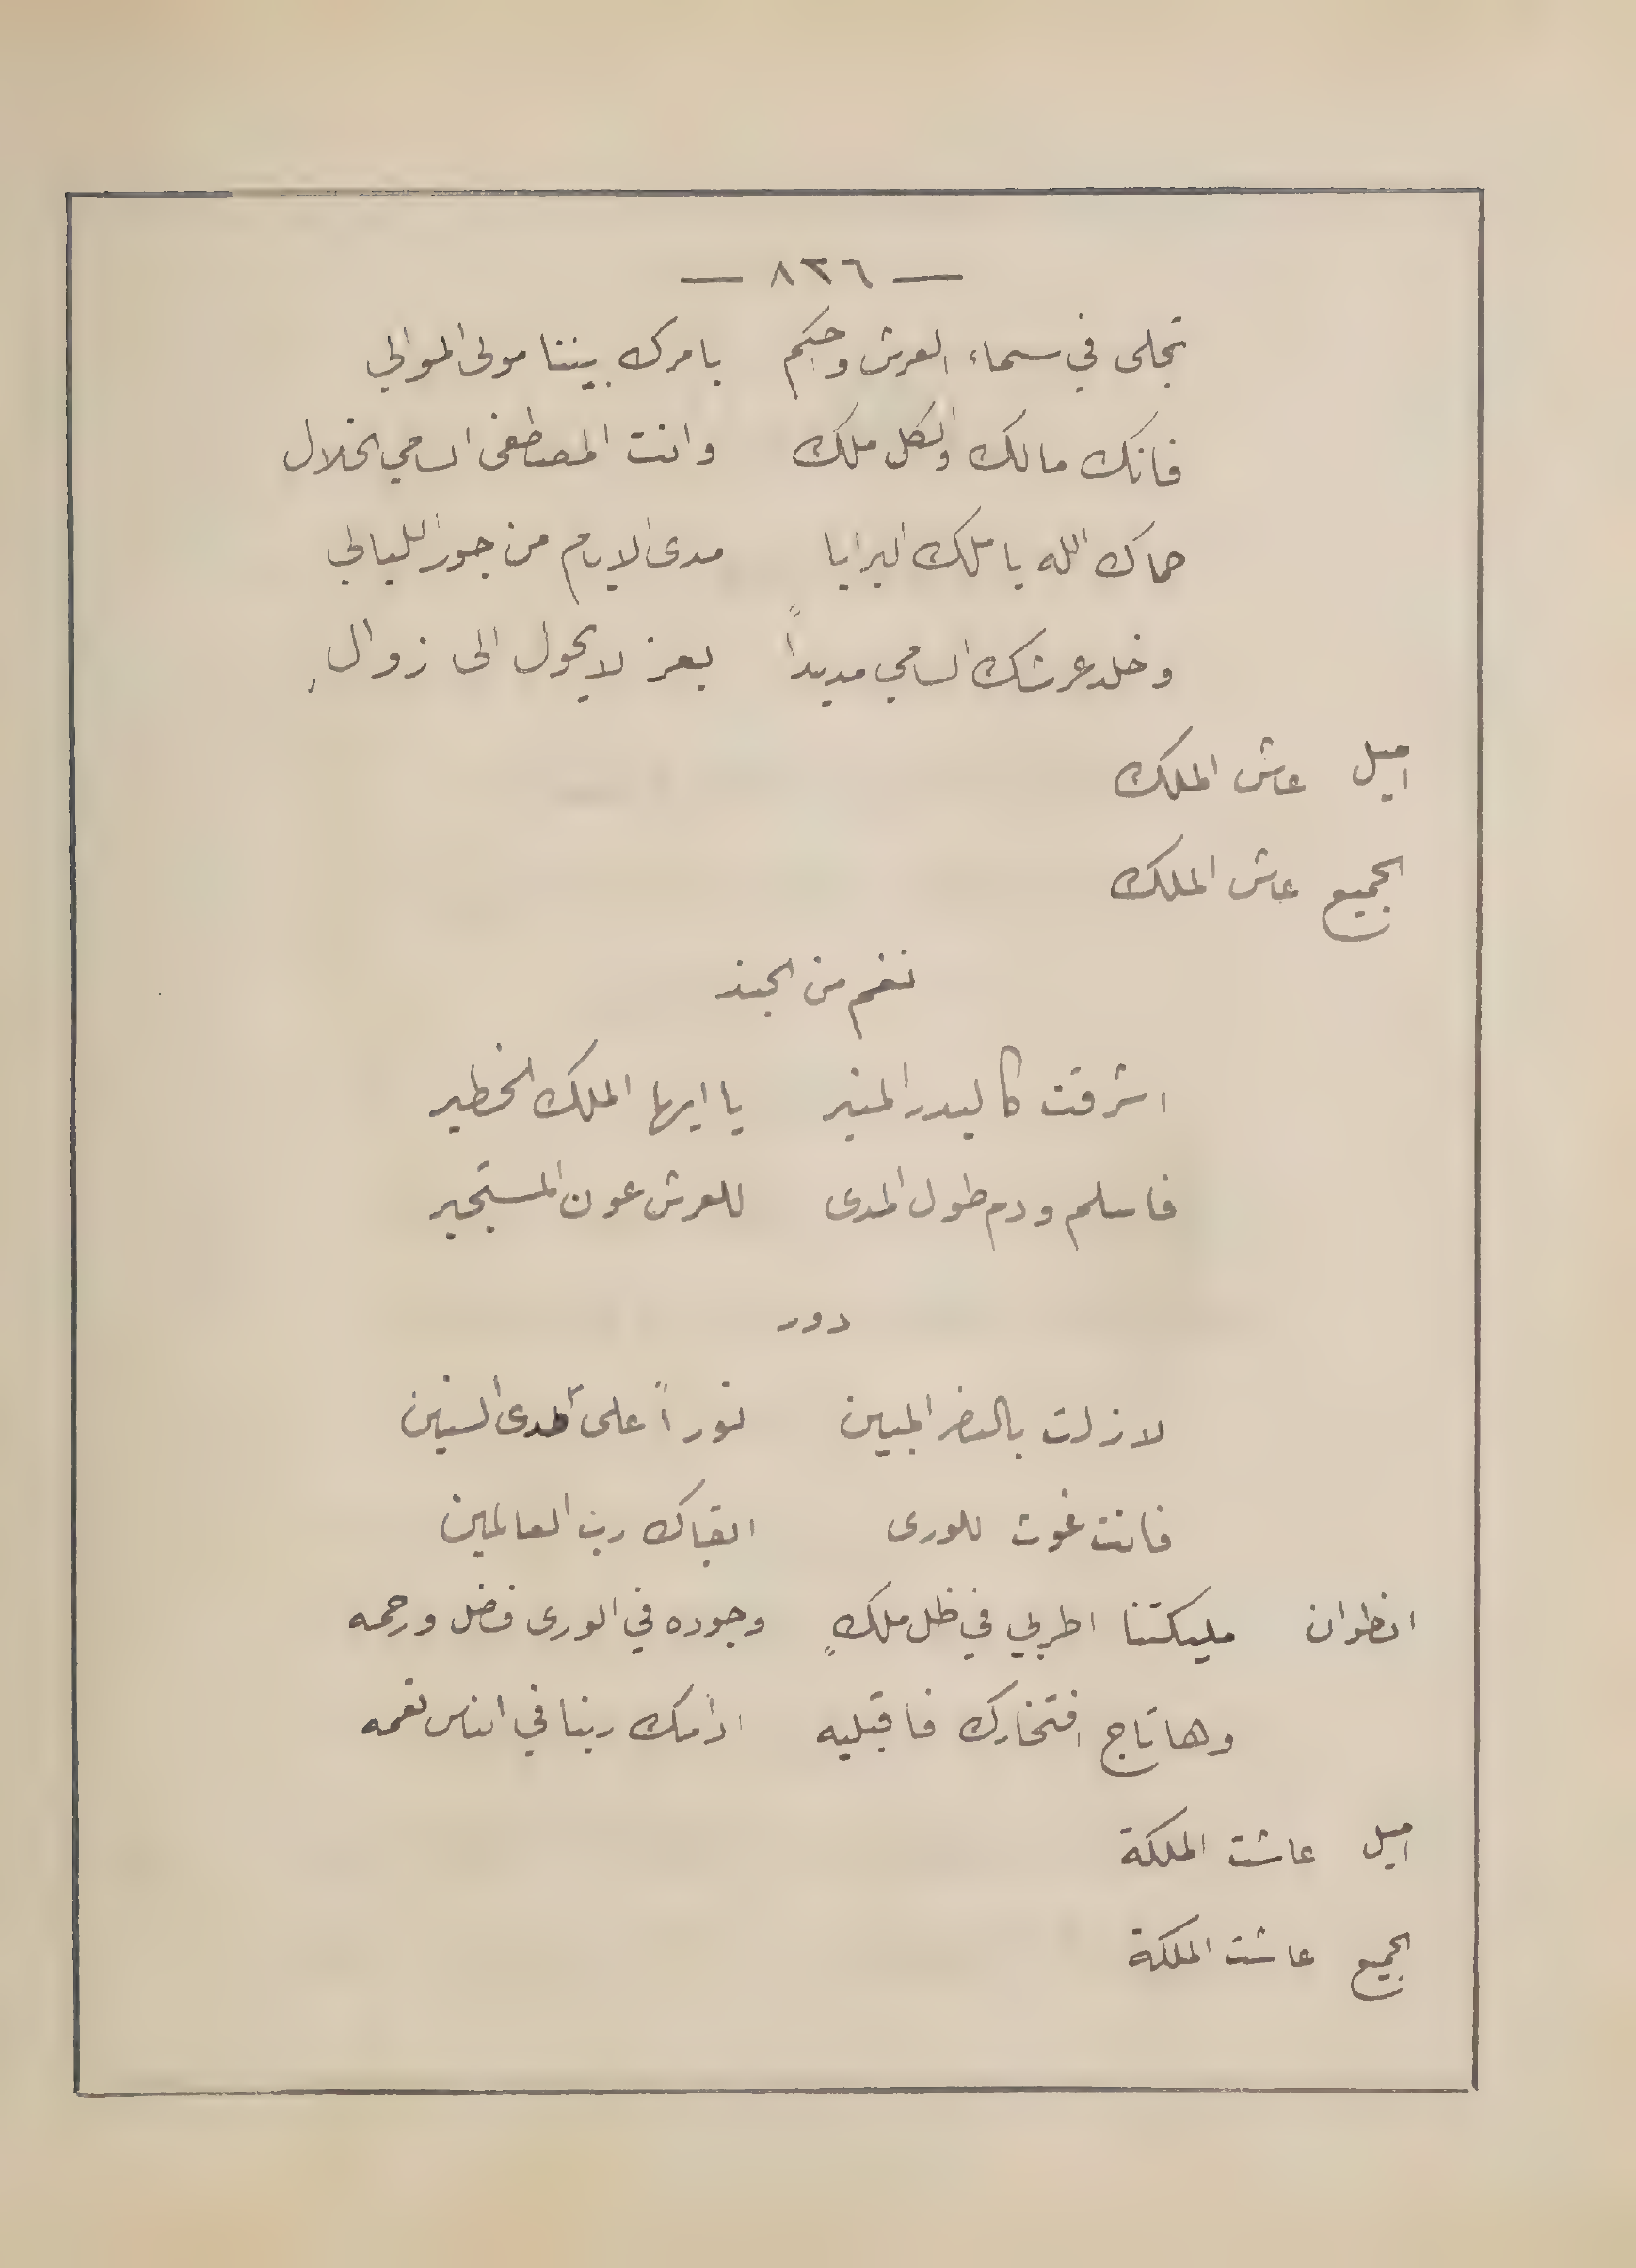 — ٨٢٦ —
تجلى في سماء العرش وحكم بامرك بيننا مولى الموالي
فانك مالك والكل ملك وانت المصطفى السامي الخلال
حماك الله يا ملك البرايا مدى الايام من جور الليالي
وخلد عرشك السامي مديداً بعز لا يحول الى زوالِ
اميل عاش الملك
الجميع عاش الملك
نغم من الجند
اشرقت كالبدر المنير يا ايها الملك الخطير
فاسلم ودم طول المدى للعرش عون المستجير
دور
لا زلت بالنصر المبين نوراً على المدى السنين
فانت غوث للورى ابقاك رب العالمين
انطوان مليكتنا اطربي في ظل ملكٍ وجوده في الورى فضل ورحمه
وها تاج افتخارك فاقبليه ادامك ربنا في الناس نعمه
اميل عاشت الملكة
الجميع عاشت الملكة